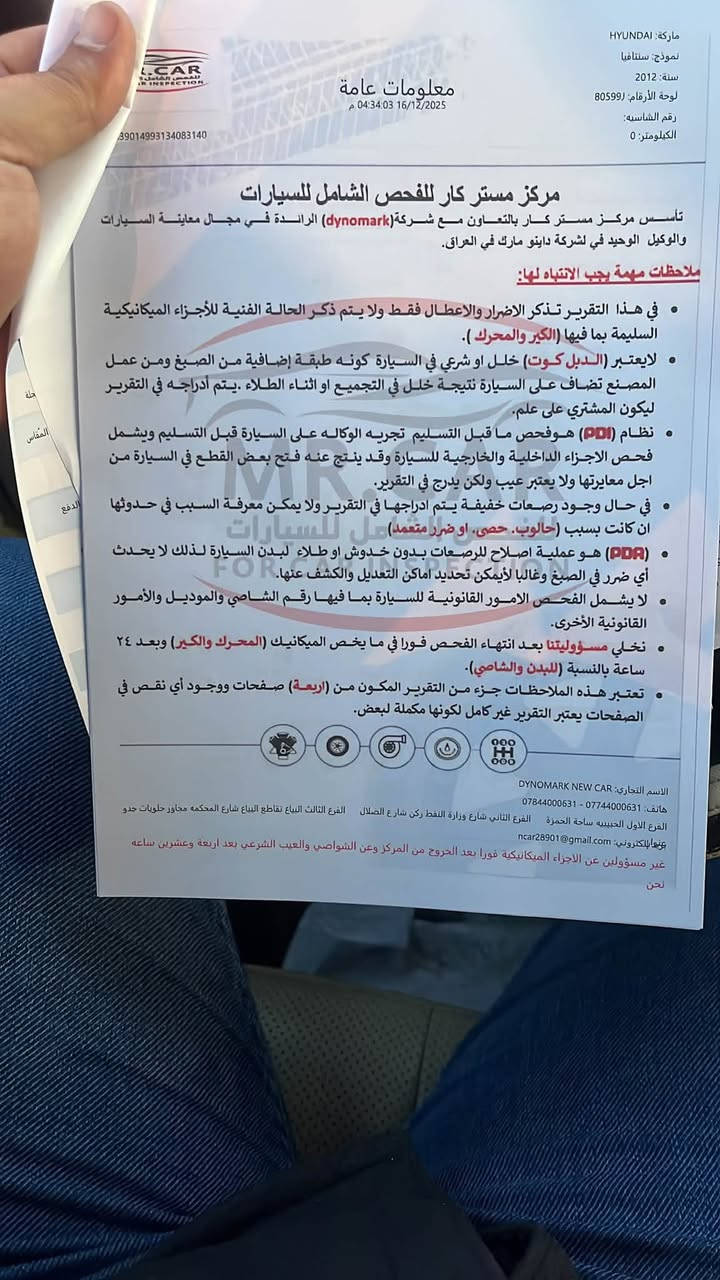 ماركة: HYUNDAI
نموذج: سنتافيا
سنة: 2012
لوحة الأرقام: 80599J
رقم الشاسيه:
الكيلومتر: 0
R.CAR
AR INSPECTION
معلومات عامة
16/12/2025 04:34:03 م
39014993134083140
مركز مستر كار للفحص الشامل للسيارات
تأسس مركز مستر كار بالتعاون مع شركة(dynomark) الرائدة في مجال معاينة السيارات
والوكيل الوحيد في لشركة داينو مارك في العراق.
ملاحظات مهمة يجب الانتباه لها:
• في هذا التقرير تذكر الاضرار والاعطال فقط ولا يتم ذكر الحالة الفنية للأجزاء الميكانيكية
السليمة بما فيها (الكير والمحرك ).
• لايعتبر (الدبل كوت) خلل او شرعي في السيارة كونه طبقة إضافية من الصبغ ومن عمل
المصنع تضاف على السيارة نتيجة خلل في التجميع او اثناء الطلاء .يتم أدراجه في التقرير
ليكون المشتري على علم.
• نظام (PDI) هوفحص ما قبل التسليم تجريه الوكاله على السيارة قبل التسليم ويشمل
فحص الاجزاء الداخلية والخارجية للسيارة وقد ينتج عنه فتح بعض القطع في السيارة من
اجل معايرتها ولا يعتبر عيب ولكن يدرج في التقرير.
• في حال وجود رصعات خفيفة يتم ادراجها في التقرير ولا يمكن معرفة السبب في حدوثها
ان كانت بسبب (حالوب. حصى او ضرر متعمد)
• (PDR) هو عملية اصلاح للرصعات بدون خدوش او طلاء لبدن السيارة لذلك لا يحدث
أي ضرر في الصبغ وغالبا لايمكن تحديد اماكن التعديل والكشف عنها.
• لا يشمل الفحص الامور القانونية للسيارة بما فيها رقم الشاصي والموديل والأمور
القانونية الأخرى.
• نخلي مسؤوليتنا بعد انتهاء الفحص فورا في ما يخص الميكانيك (المحرك والكير) وبعد ٢٤
ساعة بالنسبة (للبدن والشاصي).
• تعتبر هذه الملاحظات جزء من التقرير المكون من (اربعة) صفحات ووجود أي نقص في
الصفحات يعتبر التقرير غير كامل لكونها مكملة لبعض.
MR.CAR
FOR CAR INSPECTION
الاسم التجاري: DYNOMARK NEW CAR
هاتف: 07744000631 - 07844000631
الفرع الاول الحبيبيه ساحة الحمزة الفرع الثاني شارع وزارة النفط ركن شارع الصلال الفرع الثالث البياع تقاطع البياع شارع المحكمه مجاور حلويات جدو
ncar28901@gmail.com
غير مسؤولين عن الاجزاء الميكانيكية فورا بعد الخروج من المركز وعن الشواصي والعيب الشرعي بعد اربعة وعشرين ساعه
نحن
المقاس
الدفع